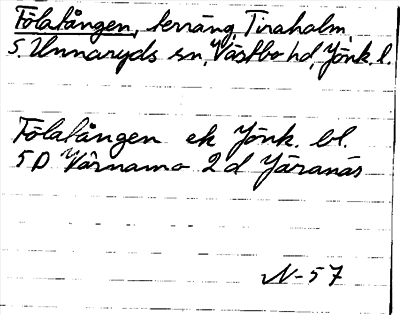 Fölafången, terräng, Tiraholm,
S. Unnaryds sn, Västbo hd, Jönk. l.
Fölafången ek Jönk. bl.
5D Värnamo 2d Järanäs
N-57